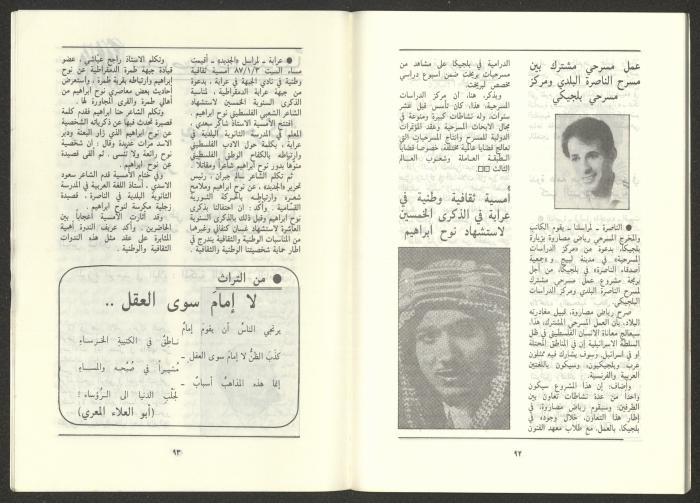 عمل مسرحي مشترك بين
مسرح الناصرة البلدي ومركز
مسرحي بلجيكي
● الناصرة - لمراسلنا - يقوم الكاتب
والمخرج المسرحي رياض مصاروة بزيارة
بلجيكا، بدعوة من «مركز الدراسات
المسرحية» في مدينة لييج و«جمعية
أصدقاء الناصرة» في بلجيكا، من أجل
برمجة مشروع عمل مسرحي مشترك
لمسرح الناصرة البلدي ومركز الدراسات
البلجيكي.
صرح رياض مصاروة، قبيل مغادرته
البلاد، بأن العمل المسرحي المشترك، هذا،
سيعالج معاناة الانسان الفلسطيني في ظل
السلطة الاسرائيلية إن في المناطق المحتلة
او في اسرائيل. وسوف يشارك فيه ممثلون
عرب وبلجيكيون، وسيكون باللغتين
العربية والفرنسية.
وأضاف: إن هذا المشروع سيكون
واحداً من عدة نشاطات تعاون بين
الطرفين: وسيقوم رياض مصاروة، في
إطار هذا التعاون، خلال وجوده في
بلجيكا، بالعمل، مع طلاب معهد الفنون
الدرامية في بلجيكا على مشاهد من
مسرحيات بريخت ضمن اسبوع دراسي
مخصص لبريخت.
ويذكر، هنا، ان مركز الدراسات
المسرحية، هذا، كان تأسس قبل عشر
سنوات، وله نشاطات كبيرة ومنوعة في
مجال الابحاث المسرحية وعقد المؤتمرات
الدولية للمسرح وانتاج المسرحيات التي
تعالج قضايا عالمية مختلفة، خصوصا قضايا
الطبقة العاملة وشعوب العالم
الثالث □□
أمسية ثقافية وطنية في
عرابة في الذكرى الخمسين
لاستشهاد نوح ابراهيم
٩٢
● عرابة - لمراسل «الجديد» - أقيمت
مساء السبت ٨٧/١/٣ أمسية ثقافية
وطنية في نادي الجبهة في عرابة، بدعوة
من جبهة عرابة الديمقراطية، لمناسبة
الذكرى السنوية الخمسين لاستشهاد
الشاعر الشعبي الفلسطيني نوح ابراهيم.
افتتح الأمسية الاستاذ شاكر سعدي،
المعلم في المدرسة الثانوية البلدية في
عرابة، بكلمة حول الأدب الفلسطيني
وارتباطه بالكفاح الوطني الفلسطيني
منوهاً بدور نوح ابراهيم شاعراً ومقاتلاً.
ثم تكلم الشاعر سالم جبران، رئيس
تحرير «الجديد»، عن نوح ابراهيم وملامح
شعره وارتباطه بالحركة الثورية
القسامية. وأكد: ان احتفالنا بذكرى
نوح ابراهيم وقبل ذلك بالذكرى السنوية
العاشرة لاستشهاد غسان كنفاني وغيرها
من المناسبات الوطنية والثقافية يندرج في
اطار حماية شخصيتنا الوطنية والثقافية.
وتكلم الاستاذ راجح عياشي، عضو
قيادة جبهة طمرة الديمقراطية عن نوح
ابراهيم وارتباطه بقرية طمرة، واستعرض
أحاديث بعض معاصري نوح ابراهيم من
أهالي طمرة والقرى المجاورة لها.
وتكلم الشاعر حنا ابراهيم فقدم كلمة
قصيرة تحدث فيها عن ذكرياته الشخصية
عن نوح ابراهيم الذي زار البعنة ودير
الاسد مرات عديدة وقال: ان شخصية
نوح رائعة ولا تنسى. ثم ألقى قصيدة
عن نوح ابراهيم.
وفي ختام الأمسية قدم الشاعر سعود
الاسدي، أستاذ اللغة العربية في المدرسة
الثانوية البلدية في الناصرة، قصيدة
زجلية مكرسة لنوح ابراهيم.
وقد أثارت الأمسية اعجاباً بين
الحاضرين. وأكد عريف الندوة أهمية
المثابرة على عقد مثل هذه الندوات
الثقافية والوطنية.
● من التراث
لا إمامَ سوى العقل ..
يرتجي الناسُ أن يقومَ إمامٌ
ناطقٌ في الكتيبةِ الخرساءِ
كذَبَ الظنُّ لا إمامَ سوى العقل -
مُشيراً في صُبحِه والمساءِ
إنما هذه المذاهبُ أسبابٌ -
لجلْبِ الدنيا الى الرُّؤساء!
(أبو العلاء المعري)
٩٣